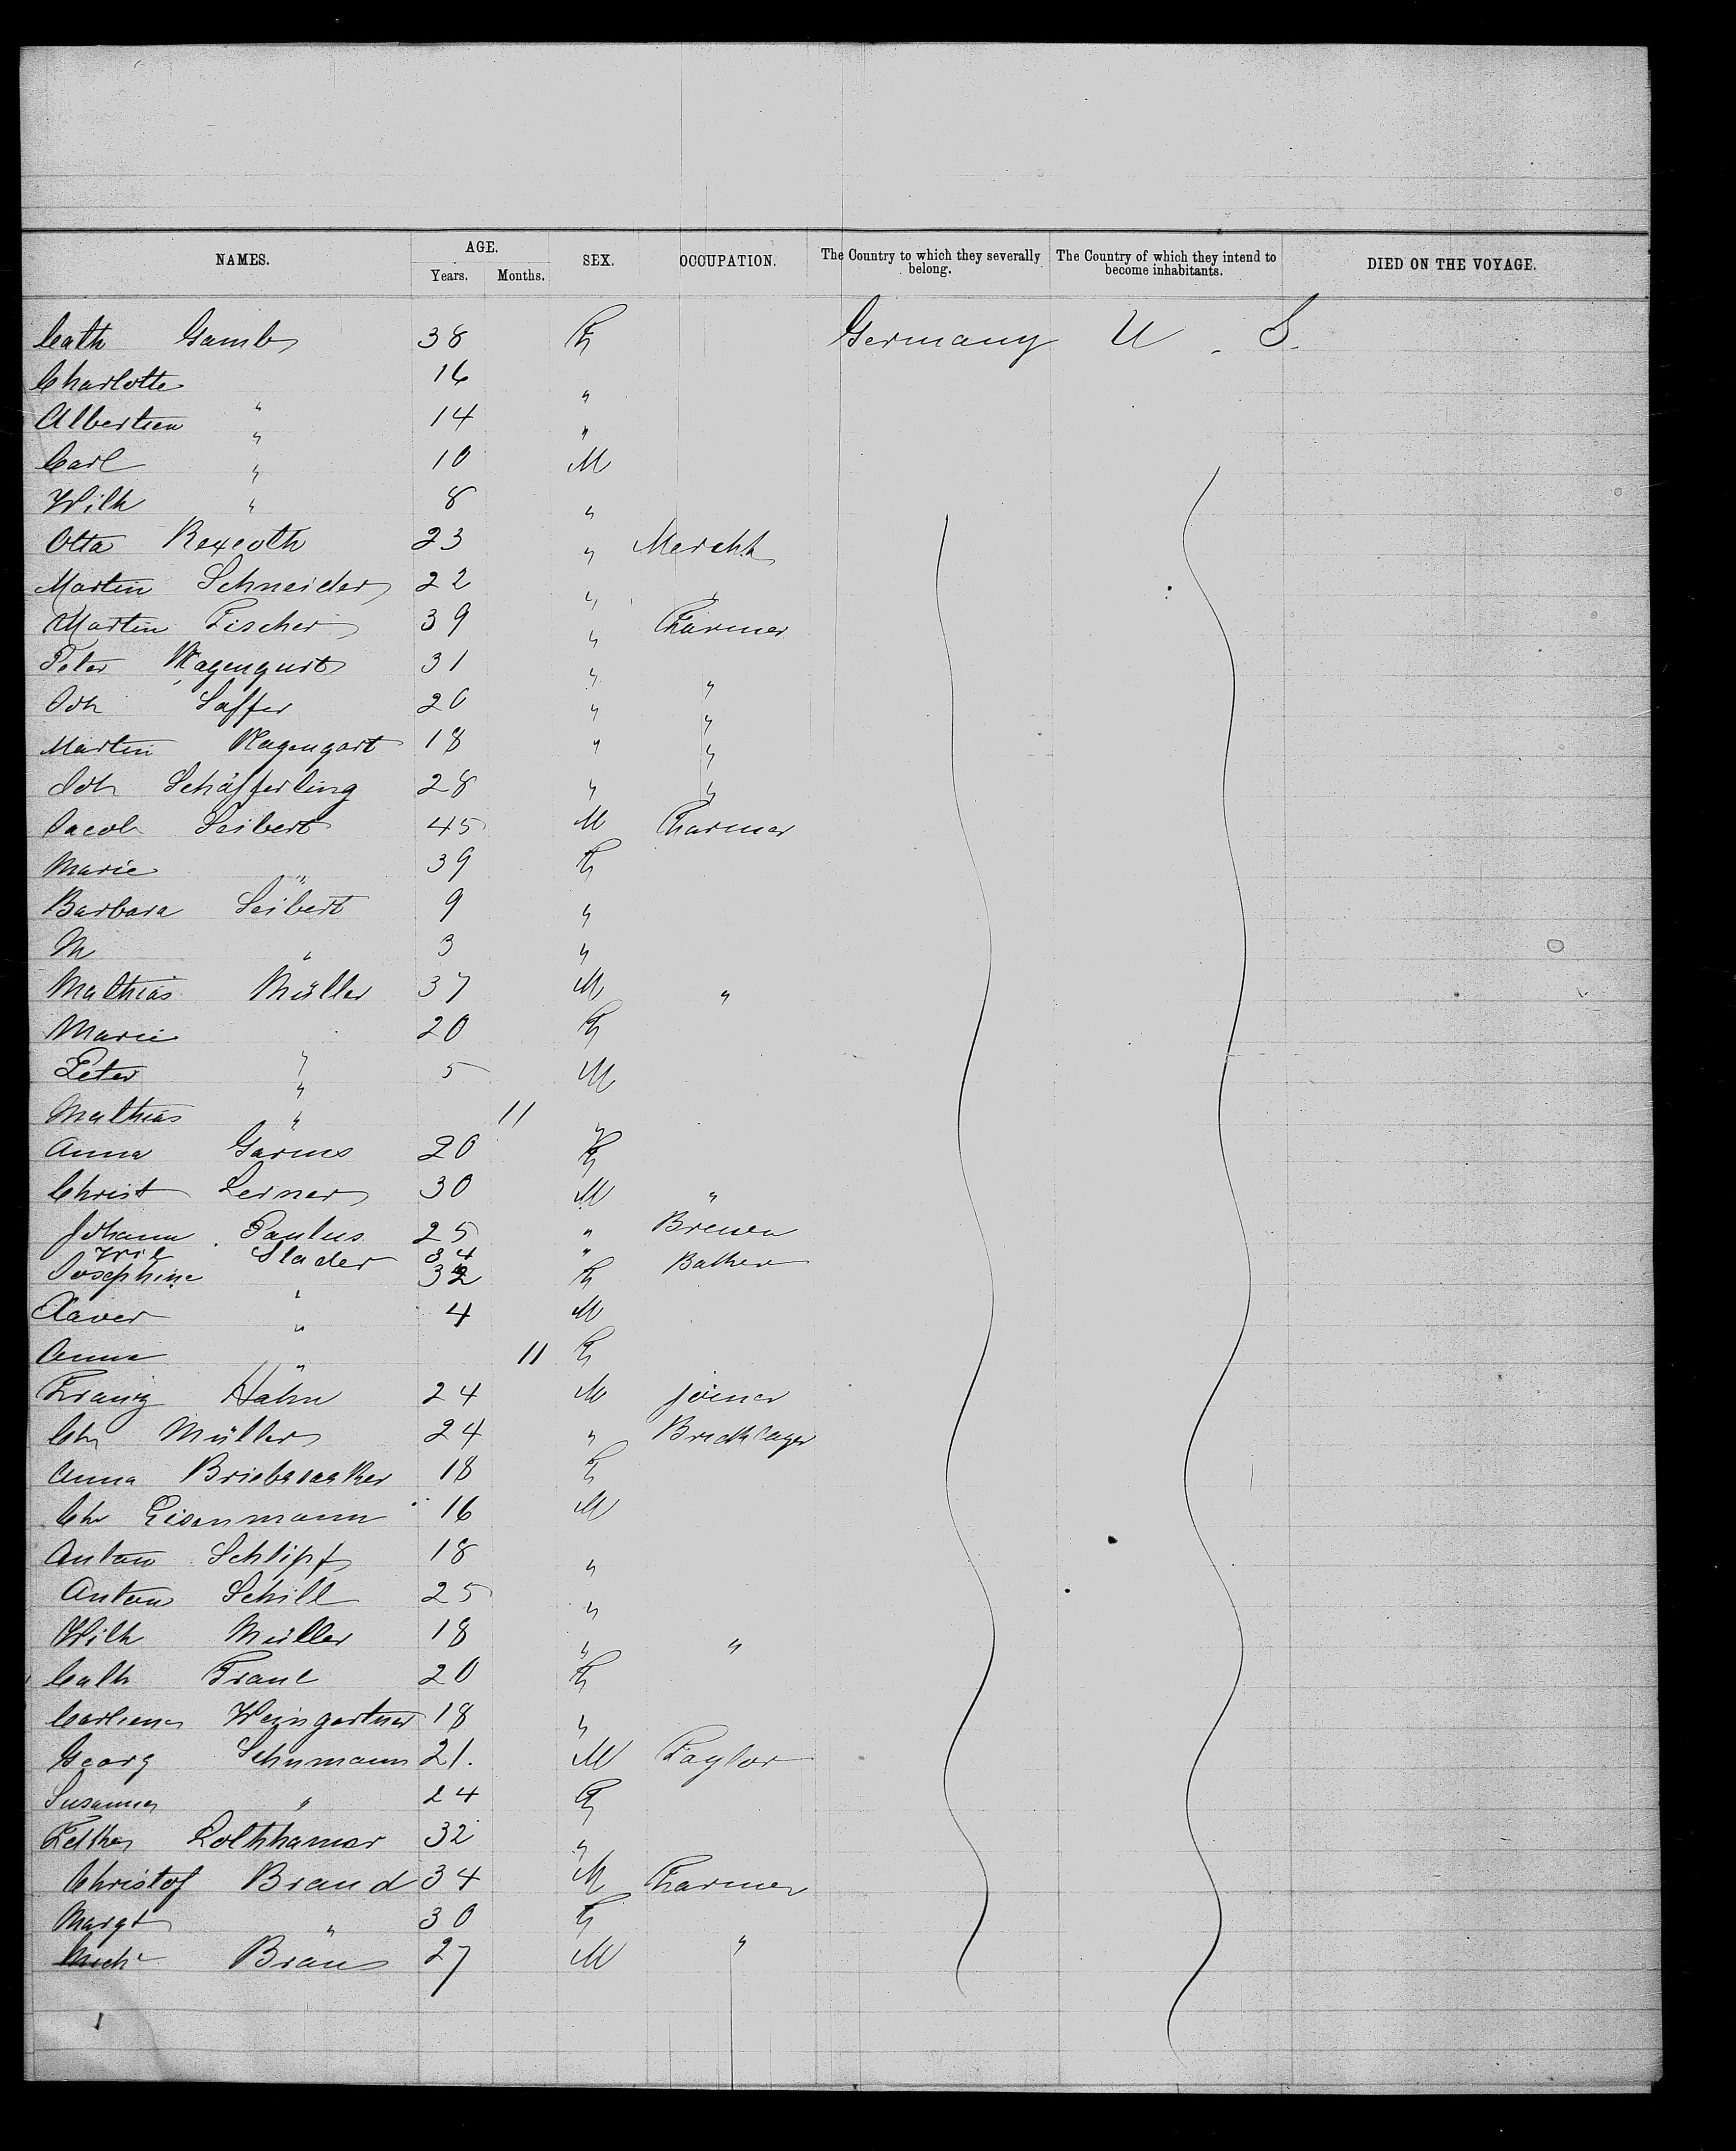 NAMES. AGE. Years. Months. SEX. OCCUPATION. The Country to which they severally belong. The Country of which they intend to become inhabitants. DIED ON THE VOYAGE.
Cath Gamb 38 F Germany U. S.
Charlotte " 16 "
Albertien " 14 "
Carl " 10 M
Wilh " 8 "
Otto Rexroth 23 " Mercht
Martin Schneider 22 " "
Martin Fischer 39 " Farmer
Peter Wagengurt 31 " "
Joh Saffer 20 " "
Martin Wagengart 18 " "
Joh Schäfferling 28 " "
Jacob Seibert 45 M Farmer
Marie " 39 F
Barbara Seibert 9 "
M " 3 "
Mathias Müller 37 M "
Marie " 20 F
Peter " 5 M
Mathias " 11 "
Anna Garms 20 F
Christ Lerner 30 M "
Johann Paulus 25 " Brewer
Wil Slader 34 "
Josephine " 32 F
Xaver " 4 M
Anna " 11 F
Franz Hahn 24 M Joiner
Chr Müller 24 " Bricklayer
Anna 18 F
Chr Eisenmann 16 M
Anton Schlipf 18 "
Anton Schill 25 "
Wilh Müller 18 " "
Cath Franc 20 F
Weingartner 18 "
Georg Schumann 21. M Taylor
Susanna " 24 F
32 "
Christof Brand 34 M Farmer
Margt " 30 F
Braus 27 M "